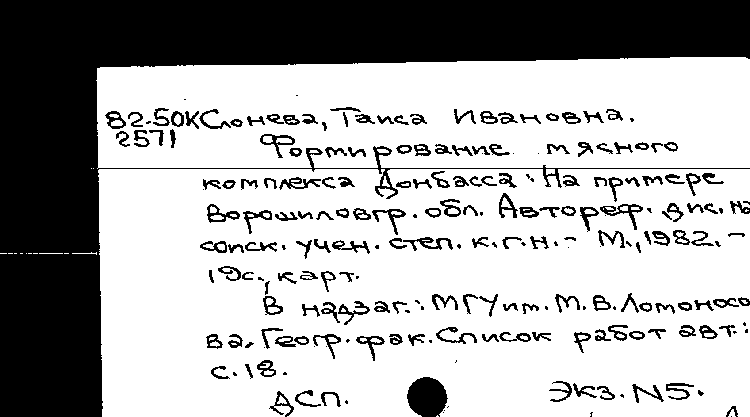 82-50К Слонева, Таиса Ивановна.
2571
Формирование мясного
комплекса Донбасса: На примере
Ворошиловгр. обл. Автореф. дис. на
соиск. учен. степ. к.г.н. - М., 1982. -
19с., карт.
В надзаг.: МГУ им. М.В. Ломоносо
ва, Геогр. фак. Список работ авт.:
с. 18.
ДСП. ЭКЗ. N5.